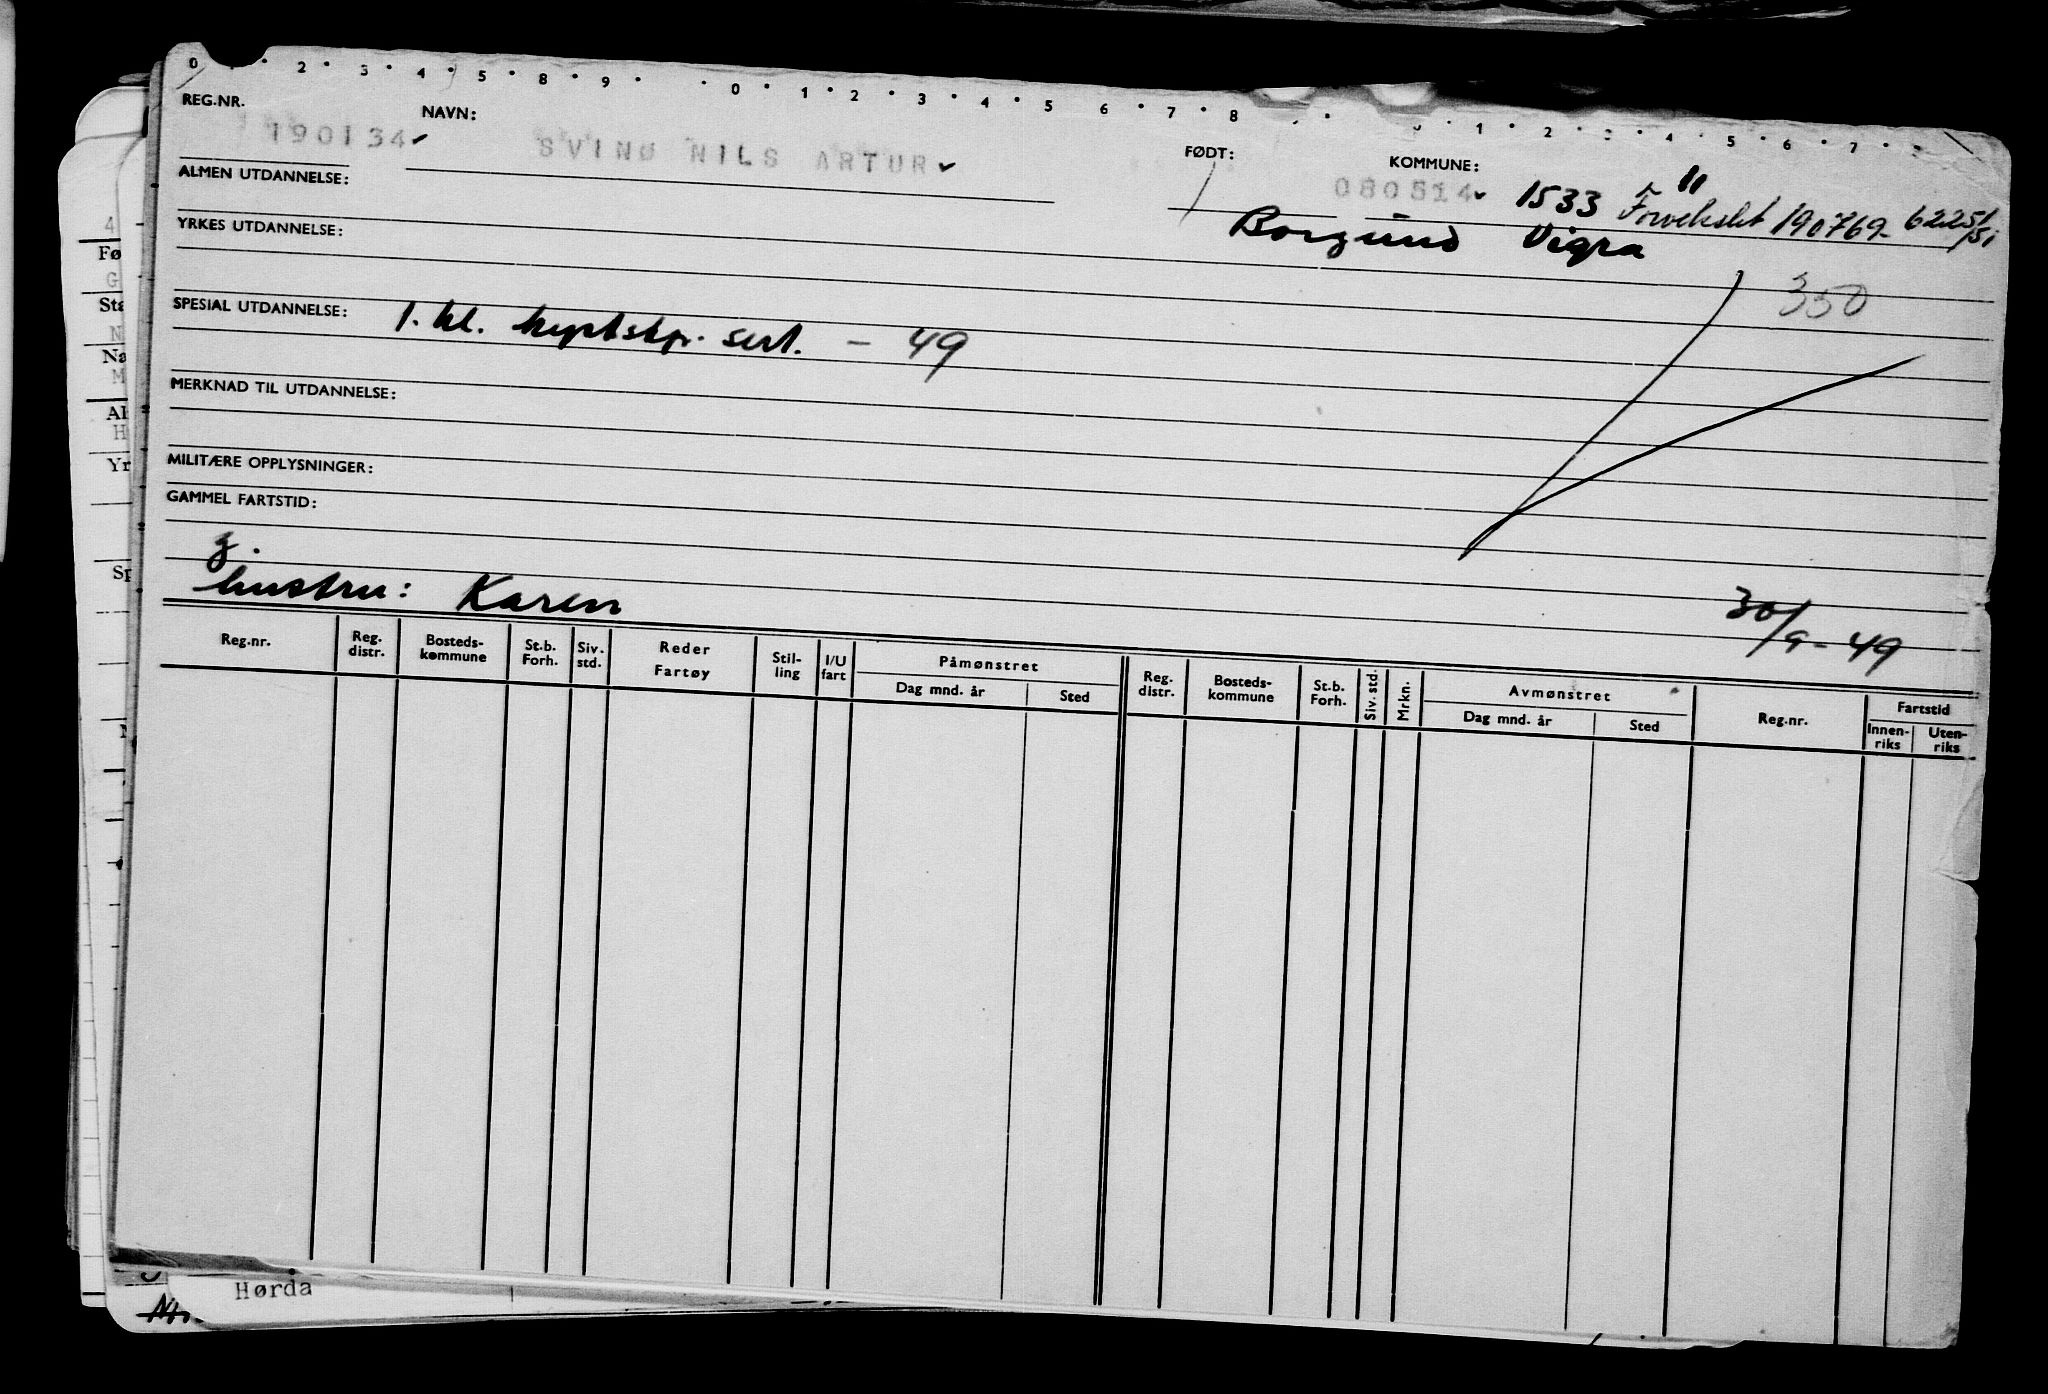 0 2 3 4 5 8 9 0 1 2 3 4 5 6 7 8 1 2 3 4 5 6 7
REG.NR. NAVN: FØDT: KOMMUNE:
190134 SVINØ NILS ARTUR 080514 1533 F 11
Forvekslet 190769- 6225/51
ALMEN UTDANNELSE: Borgund Vigra
YRKES UTDANNELSE:
350
SPESIAL UTDANNELSE: 1. kl. kystskpr. sert. - 49
MERKNAD TIL UTDANNELSE:
MILITÆRE OPPLYSNINGER:
GAMMEL FARTSTID:
g.
hustru: Karen 30/9-49
Reg.nr. Reg. distr. Bosteds-kommune St.b. Forh. Siv. std. Reder Fartøy Stil-ling I/U fart Påmønstret Dag mnd. år Sted Reg. distr. Bosteds-kommune St.b. Forh. Siv. std. Mrkn. Avmønstret Dag mnd. år Sted Reg.nr. Fartstid Innen-riks Uten-riks
4
Fø
G
Sta
N
Na
M
Al
H
Yr
Sp
Hørda